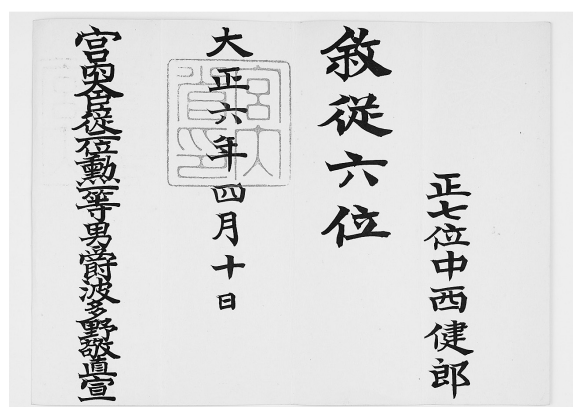 正七位中西健郎
敘從六位
大正六年四月十日
宮内大臣從二位勲一等男爵波多野敬直宣